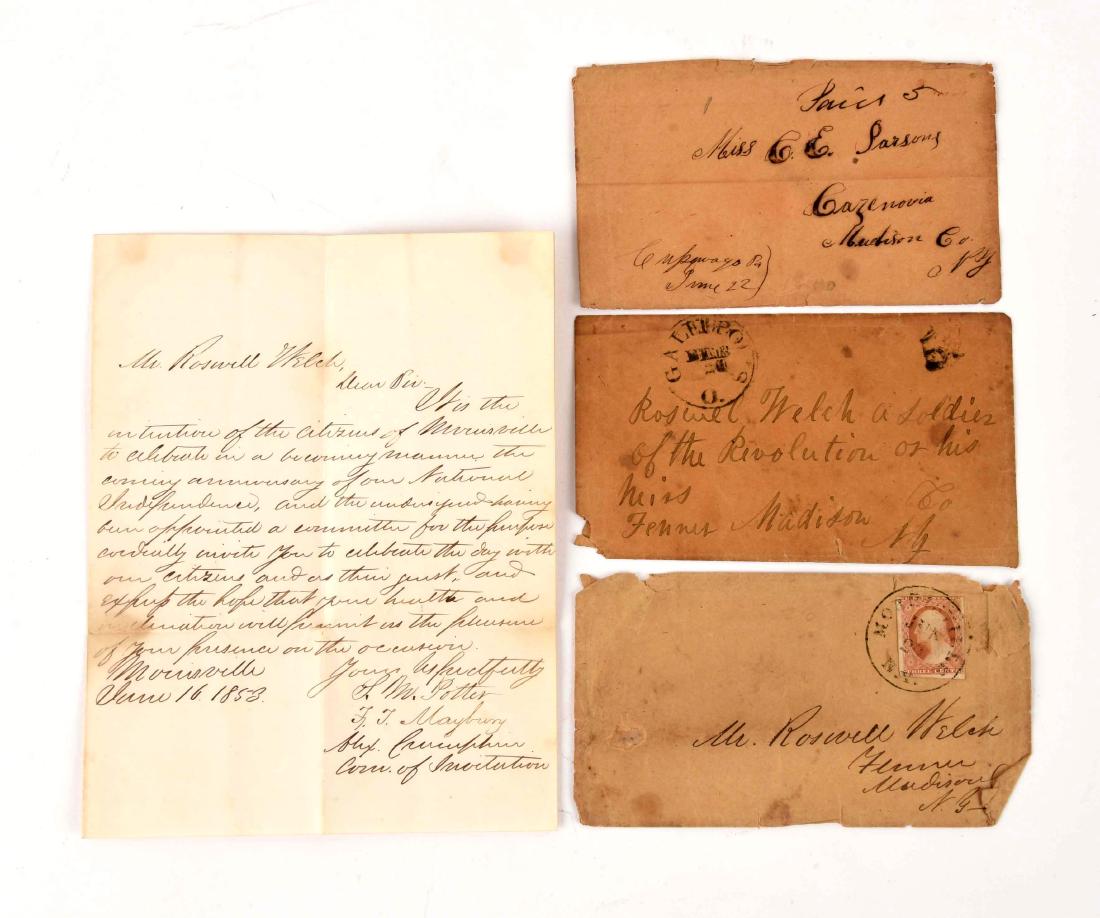 Mr. Roswell Welch,
Dear Sir.
It is the
intention of the citizens of Morrisville
to celebrate in a becoming manner, the
coming anniversary of our National
Independence, and the undersigned having
been appointed a committee for the purpose
cordially invite you to celebrate the day with
our citizens and as their guest, and
express the hope that your health and
inclination will permit us the pleasure
of your presence on the occasion.
Morrisville Yours respectfully
June 16 1853. T. M. Potter
F. T. Maybury
Alex.
Com. of Invitation
Paid 5
Miss C. E. Parsons
Cazenovia
Madison Co.
NY
June 22
GALLIPOLIS
O.
Roswell Welch a soldier
of the Revolution or his
heirs
Fenner Madison Co
NY
THREE CENTS
Mr. Roswell Welch
Fenner
Madison
N.Y.